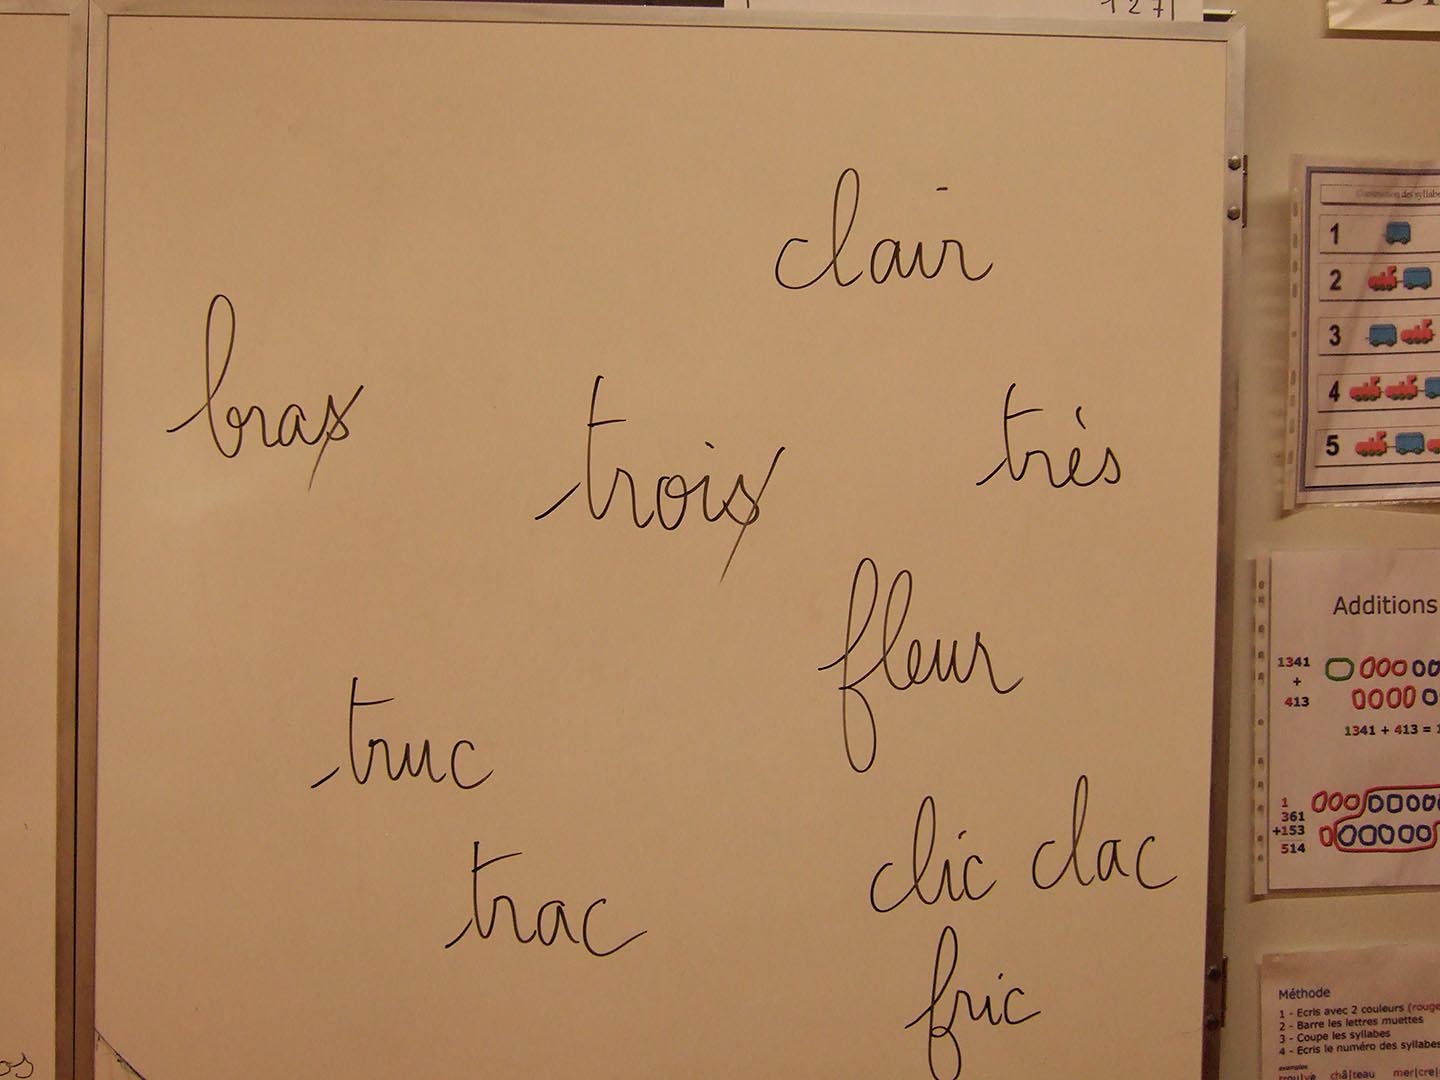 127
clair
bras
trois
très
fleur
truc
clic clac
trac
fric
os
1
2
3
4
5
Additions
1341
+
413
1341 + 413 =
1
361
+153
514
Méthode
1 - Ecris avec 2 couleurs (rouge
2 - Barre les lettres muettes
3 - Coupe les syllabes
4 - Ecris le numéro des syllabes
exemples
trou|ve châ|teau mer|cre|